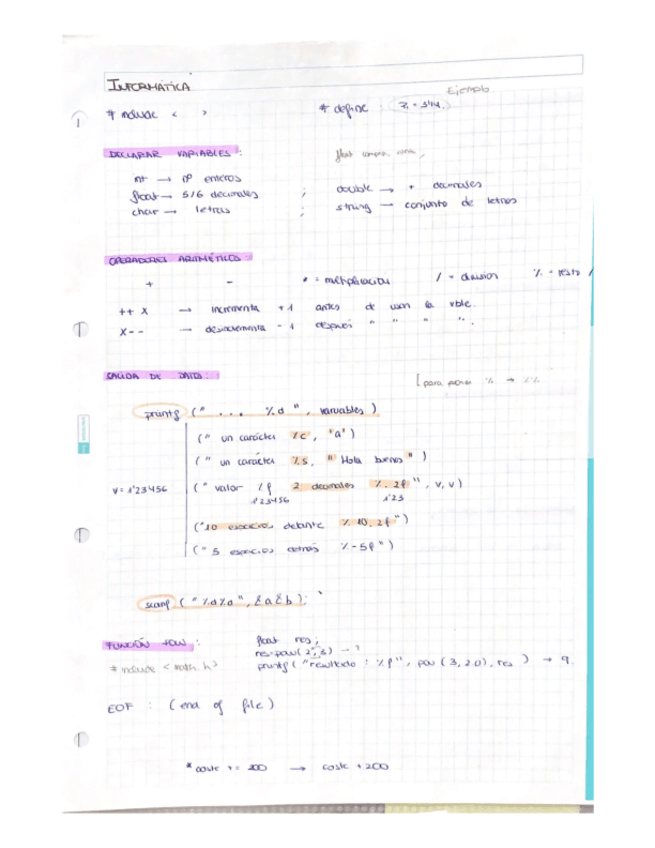 INFORMÁTICA
Ejemplo
# include < >
# define
DECLARAR VARIABLES :
float compra, coste,
int → nº enteros
float → 5/6 decimales ; double → + decimales
char → letras ; string → conjunto de letras
OPERADORES ARITMÉTICOS :
+ - * = multiplicación / = división % = resto /
++ X → incrementa +1 antes de usar la vble.
X-- → desincrementa -1 después " " " ".
SALIDA DE DATOS :
[ para poner % → %%
printf (" ... %d ", variables )
(" un carácter %c , 'a')
(" un carácter %s, " Hola buenas " )
V = 1'23456 (" valor %f 2 decimales %. 2f ", v, v)
1'23456 1'23
("10 espacios delante %10.2f ")
(" 5 espacios detrás %-5f ")
scanf ( " %d%d ", &a&b );
FUNCIÓN POW :
float res;
# include < math. h>
res=pow( 2, 3) →
printf ( "resultado : %f", pow ( 3, 2.0), res ) → 9
EOF : (end of file)
* coste += 200 → coste + 200